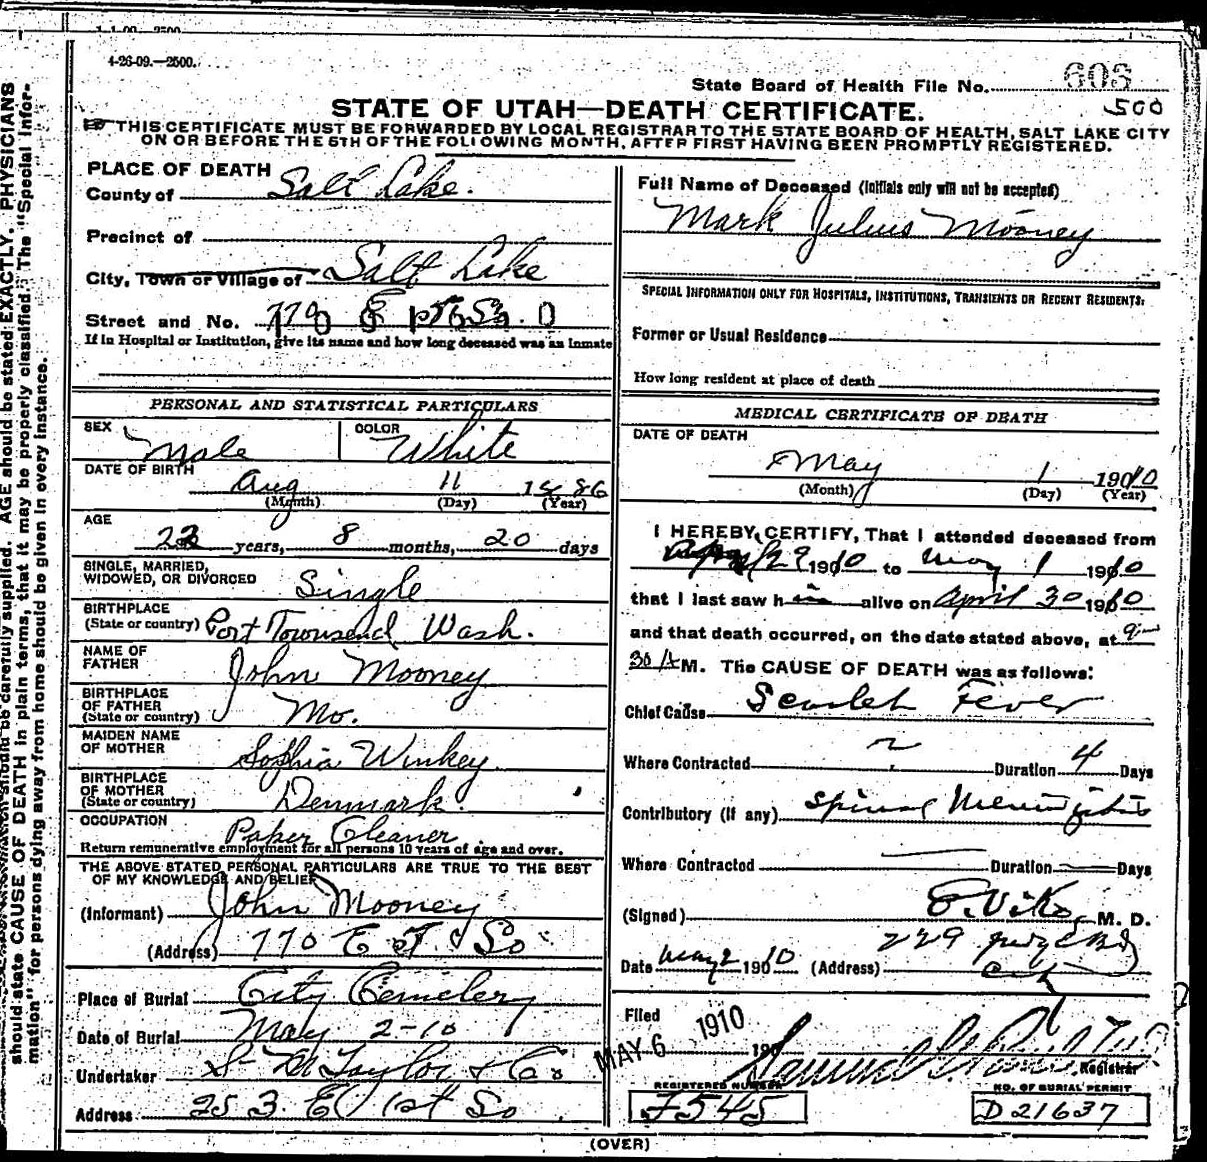 4-26-09.—2500.
State Board of Health File No. 603
500
STATE OF UTAH—DEATH CERTIFICATE.
THIS CERTIFICATE MUST BE FORWARDED BY LOCAL REGISTRAR TO THE STATE BOARD OF HEALTH, SALT LAKE CITY
ON OR BEFORE THE 5TH OF THE FOLLOWING MONTH, AFTER FIRST HAVING BEEN PROMPTLY REGISTERED.
PLACE OF DEATH
County of Salt Lake.
Precinct of
City, Town or Village of Salt Lake
Street and No. 770 E 1st So.
If in Hospital or Institution, give its name and how long deceased was an inmate
PERSONAL AND STATISTICAL PARTICULARS
SEX Male COLOR White
DATE OF BIRTH Aug 11 1886
(Month) (Day) (Year)
AGE 23 years, 8 months, 20 days
SINGLE, MARRIED,
WIDOWED, OR DIVORCED Single
BIRTHPLACE
(State or country) Port Townsend Wash.
NAME OF
FATHER John Mooney
BIRTHPLACE
OF FATHER
(State or country) Mo.
MAIDEN NAME
OF MOTHER Sophia Winkey
BIRTHPLACE
OF MOTHER
(State or country) Denmark.
OCCUPATION Paper Cleaner
Return remunerative employment for all persons 10 years of age and over.
THE ABOVE STATED PERSONAL PARTICULARS ARE TRUE TO THE BEST
OF MY KNOWLEDGE AND BELIEF
(Informant) John Mooney
(Address) 770 E 1st So
Place of Burial City Cemetery
Date of Burial May 2-10
Undertaker S. M. Taylor & Co
Address 253 E 1st So
Full Name of Deceased (Initials only will not be accepted)
Mark Julius Mooney
SPECIAL INFORMATION ONLY FOR HOSPITALS, INSTITUTIONS, TRANSIENTS OR RECENT RESIDENTS:
Former or Usual Residence
How long resident at place of death
MEDICAL CERTIFICATE OF DEATH
DATE OF DEATH
May 1 1910
(Month) (Day) (Year)
I HEREBY CERTIFY, That I attended deceased from
April 29 1910 to May 1 1910
that I last saw him alive on April 30 1910
and that death occurred, on the date stated above, at 9
30 A M. The CAUSE OF DEATH was as follows:
Chief Cause Scarlet Fever
Where Contracted ? Duration 4 Days
Contributory (if any) Spinal Meningitis
Where Contracted Duration Days
(Signed) E. Viko, M. D.
Date May 2 1910 (Address) 229 Judge Bldg
City
Filed
MAY 6 1910 190
Registrar
REGISTERED NUMBER
NO. OF BURIAL PERMIT
J545
D 21637
(OVER)
should be carefully supplied. AGE should be stated EXACTLY. PHYSICIANS
should state CAUSE OF DEATH in plain terms, that it may be properly classified. The "Special Infor-
mation" for persons dying away from home should be given in every instance.